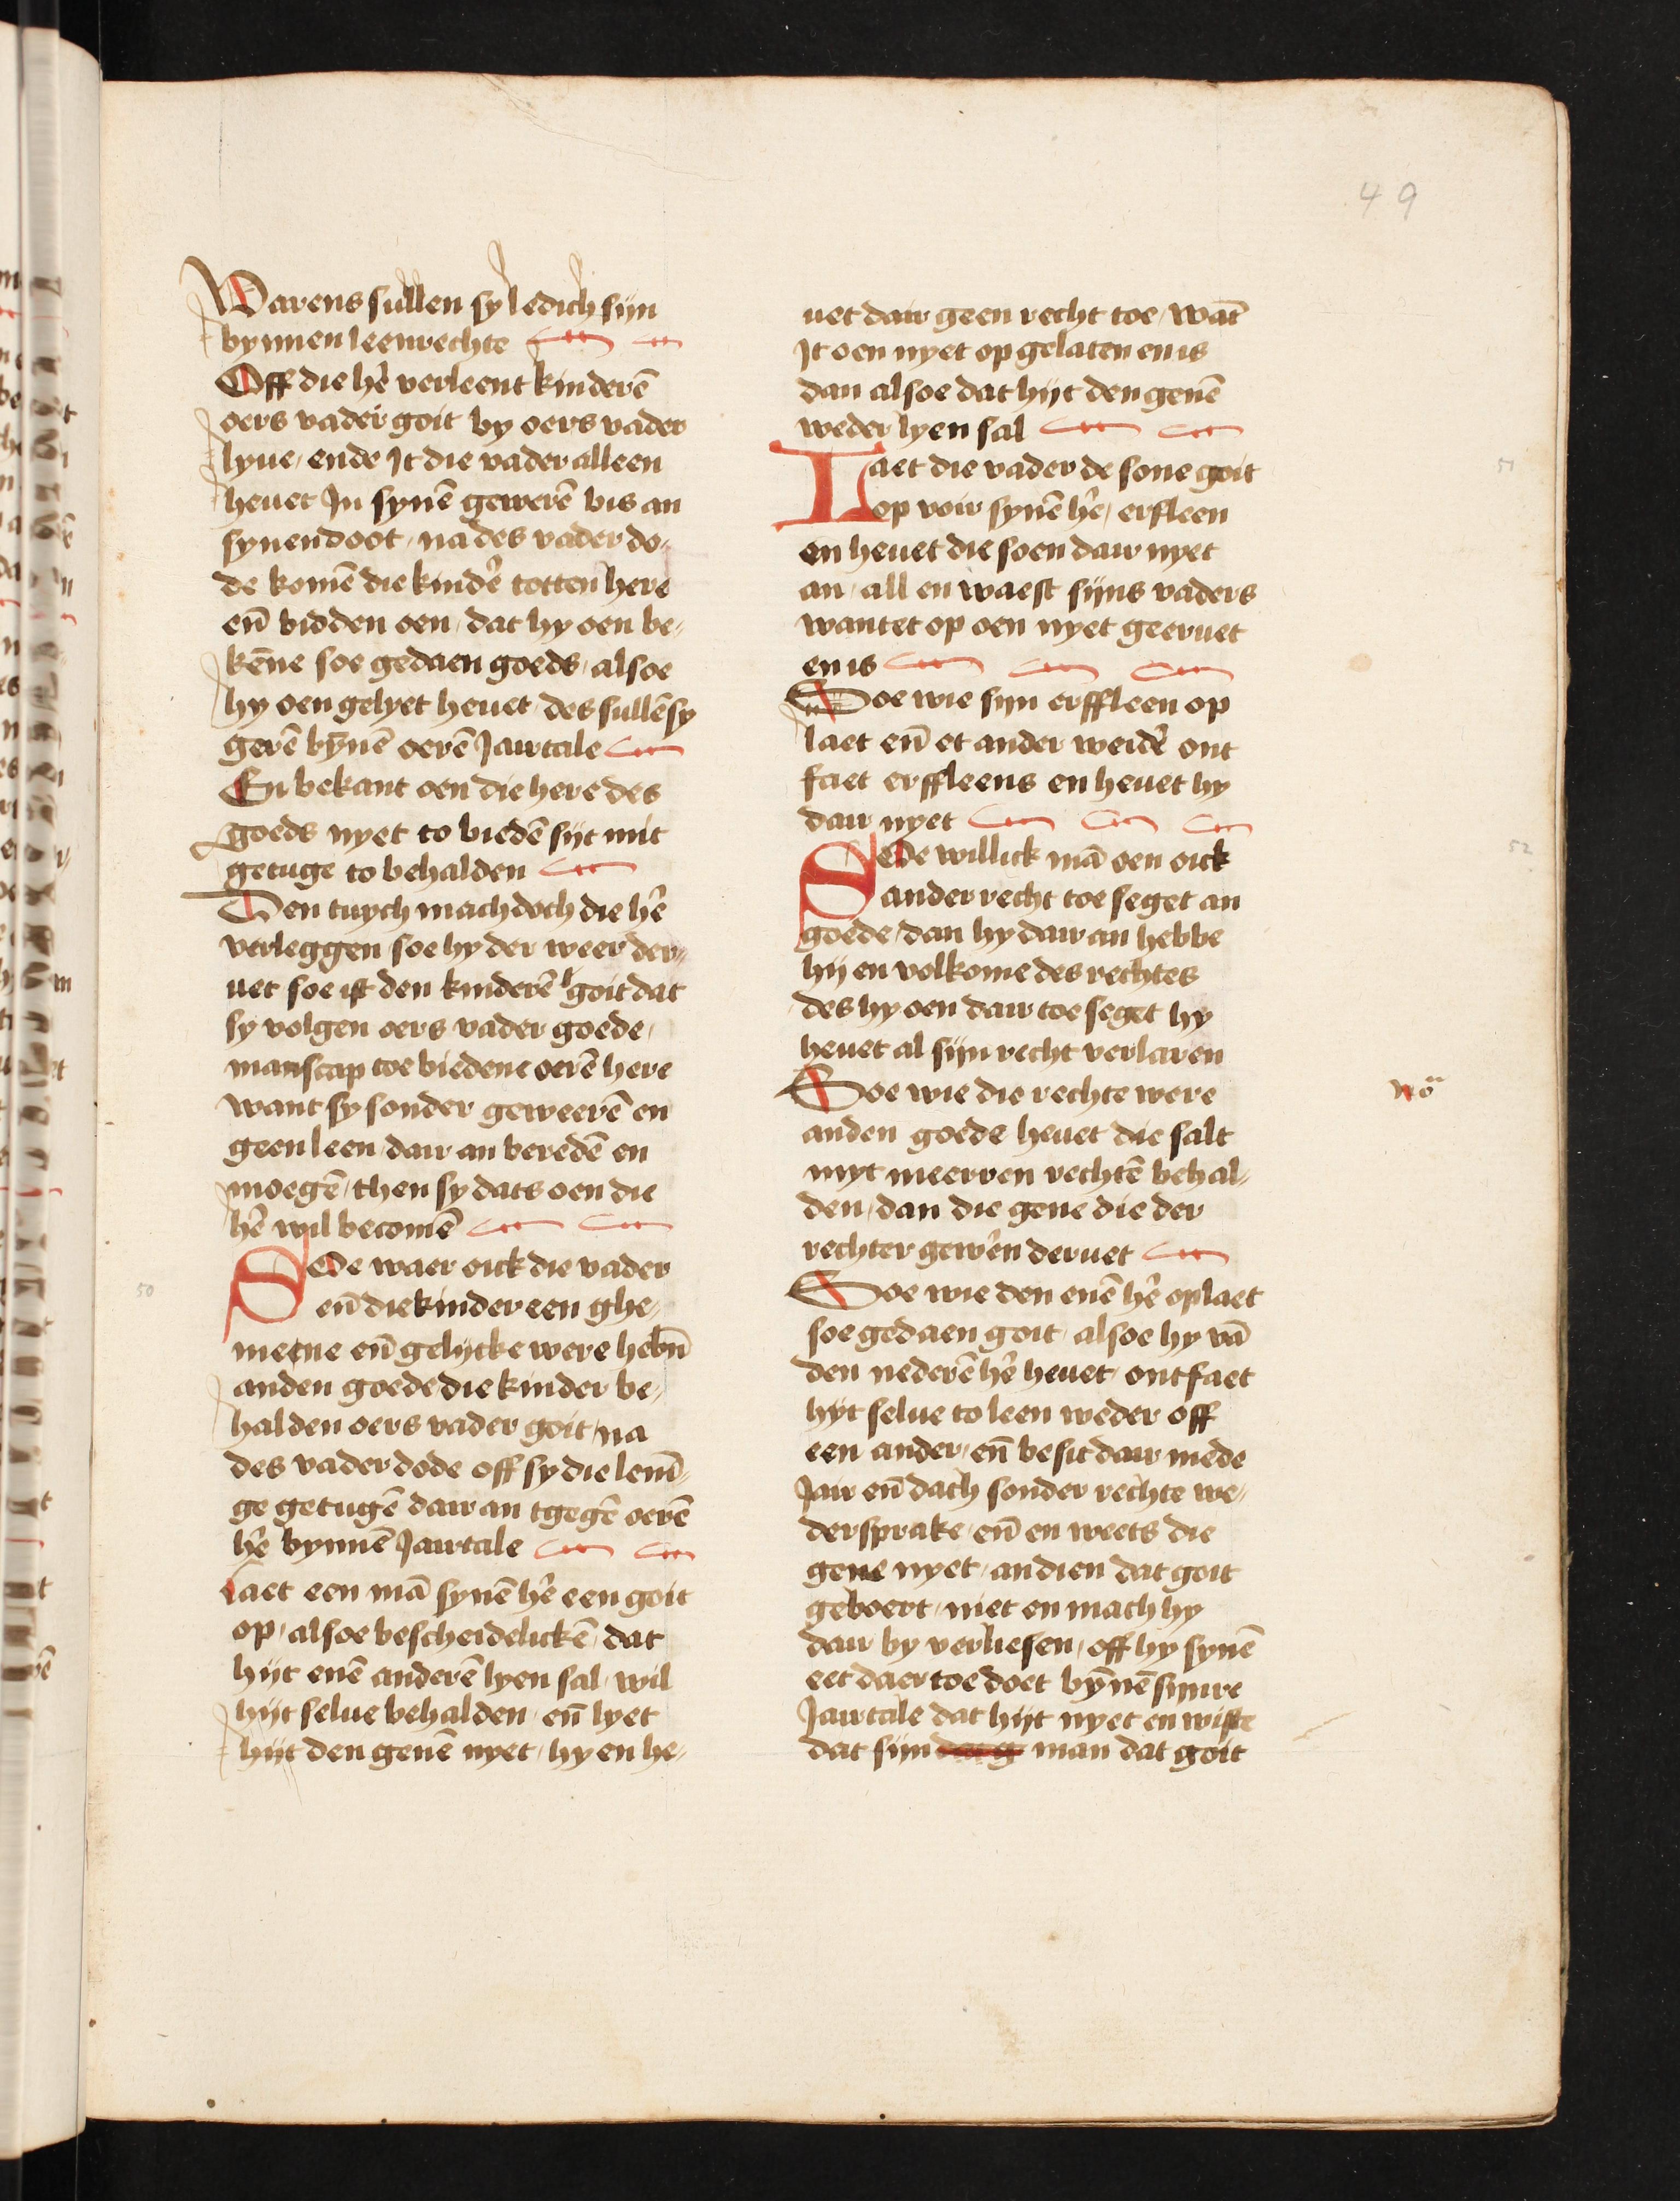 49
Warens sullen sy ledich sijn
bynnen leenrechte
Off die hẽ verleent kinderẽ
oers vader goit by oers vader
lyue / ende It die vader alleen
heuet In synẽ gewerẽ bis an
synen doot / na des vader do⸗
de komẽ die kindẽ totten here
eñ bidden oen / dat hy oen be⸗
kẽne soe gedaen goeds / alsoe
hy oen gelyet heuet / des sullẽ sy
gerẽ bỹnẽ oerẽ Jairtale
En bekant oen die here des
goeds nyet to biedẽ sijt mit
getuge to behalden
Den tuych mach doch die hẽ
verleggen soe hy der weer der⸗
uet soe ist den kinderẽ goit dat
sy volgen oers vader goede /
manscap toe biedene oerẽ here
want sy sonder geweerẽ en
geen leen dair an beredẽ en
moegẽ / then sy dats oen die
hẽ wil becomẽ
50
Sede waer oick die vader
eñ die kinder een ghe⸗
meene eñ gelijcke were hebñ
anden goede die kinder be⸗
halden oers vader goit / na
des vader dode off sy die lenĩ⸗
ge getugẽ dair an tgegẽ oerẽ
hẽ bynnẽ Jairtale
Laet een mã synẽ hẽ een goit
op / alsoe bescheidelickẽ / dat
hijt enẽ anderẽ lyen sal / wil
hijt selue behalden / eñ lyet
hijt den genẽ nyet / hy en he⸗
uet dair geen recht toe / wãt
It oen nyet op gelaten en is
dan alsoe dat hijt den genẽ
weder lyen sal
51
Laet die vader de sone goit
op voir synẽ hẽ / erfleen
en heuet die soen dair nyet
an / all en waest sijns vaders
want et op oen nyet geeruet
en is
Soe wie sijn erffleen op
laet eñ et ander weidẽ ont
faet erffleens en heuet hy
dair nyet
52
Sede willick mã oen oick
ander recht toe seget an
goede / dan hy dair an hebbe
hij en volkome des rechtes
des hy oen dair toe seget hy
heuet al sijn recht verlaren
Soe wie die rechte were
anden goede heuet die salt
myt meerren rechtẽ behal⸗
den / dan die gene die der
rechter gewẽn deruet
Soe wie den enẽ hẽ oplaet
soe gedaen goit / alsoe hy vã
den nederẽ hẽ heuet / ontfaet
hijt selue to leen weder off
een ander / eñ besit dair mede
Jair eñ dach sonder rechte we⸗
dersprake / eñ en weets die
gene nyet / an dien dat goit
geboert / niet en mach hy
dair by verliesen / off hy synẽ
eet daer toe doet bỹnẽ sijnre
Jairtale dat hijt nyet en wiste
dat sijn man dat goit